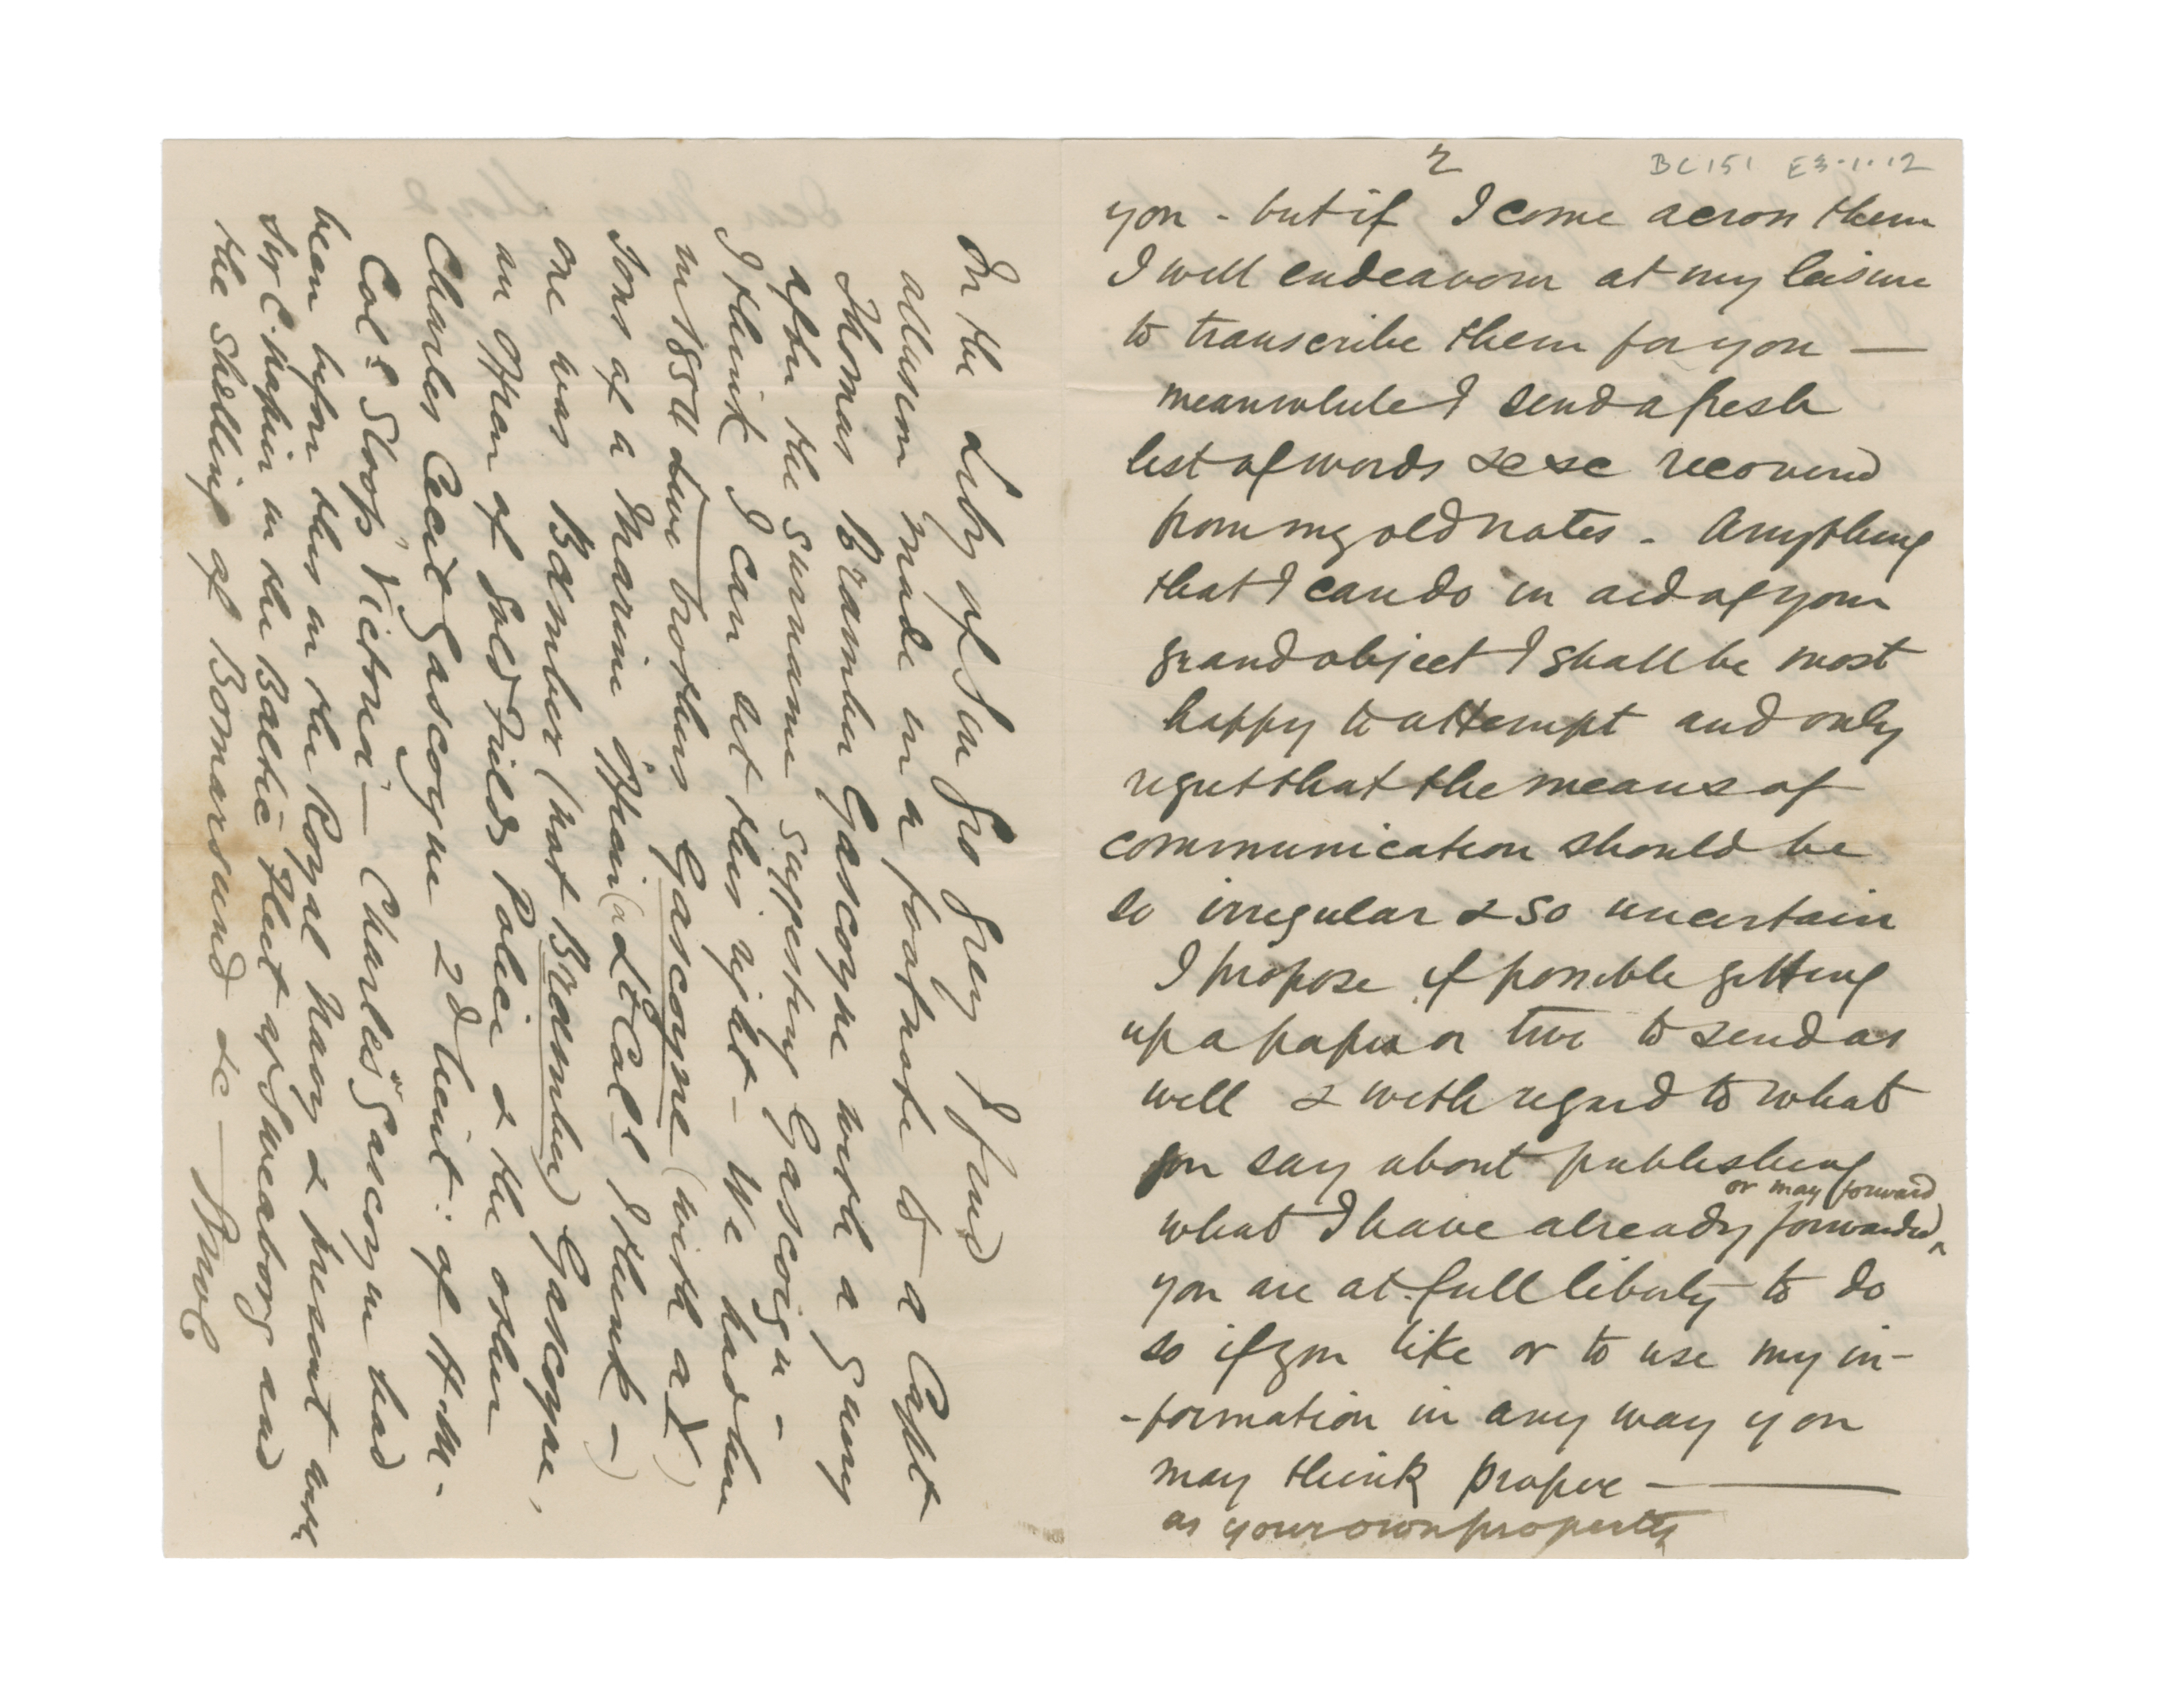 2
BC151 E3.1.12
you - but if I come across them
I will endeavour at my leisure
to transcribe them for you —
meanwhile I send a fresh
list of words &c &c recovered
from my old notes - Anything
that I can do in aid of your
grand object I shall be most
happy to attempt and only
regret that the means of
communication should be
so irregular & so uncertain
I propose if possible getting
up a paper or two to send as
well & with regard to what
you say about publishing
or may forward
what I have already forwarded
you are at full liberty to do
so if you like or to use my in-
-formation in any way you
may think proper —
as your own property
In the Life of Sir Geo Grey I find
allusion made in a footnote to a Capt
Thomas Bramber Gascoyne with a query
after the surname suggesting Gascoign -
I think I can set this right - We had here
in 1854 two brothers Gascoyne (with a d)
Sons of a Marine Officer (a Lt Col I think -)
one was Bamber (not Bramber) Gascoyne,
an officer of Gold Fields Police & the other
Charles Cecil Gascoyne 2d Lieut: of H.M.
Col: Sloop "Victoria" - Charles Gascoyne had
been before this in the Royal Navy & present with
Sir C. Napier in the Baltic Fleet at Sweaborg and
the shelling of Bomarsund &c —